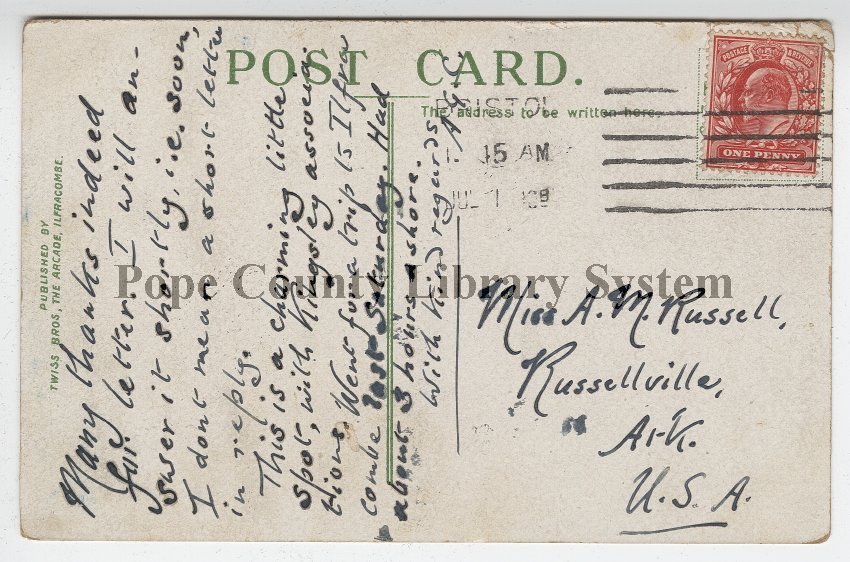 POST CARD.
The address to be written here.
PUBLISHED BY
TWISS BROS, THE ARCADE, ILFRACOMBE.
Many thanks indeed
for letter. I will an-
swer it shortly, i.e. soon,
I dont mean a short letter
in reply.
This is a charming little
spot, with Kingsley associa-
tions. Went for a trip to Ilfra
combe last Saturday. Had
about 3 hours ashore.
With kind regards
BRISTOL
45 AM
JUL 1
POSTAGE REVENUE
ONE PENNY
Miss A. M. Russell,
Russellville,
Ark.
U.S.A.
Pope County Library System